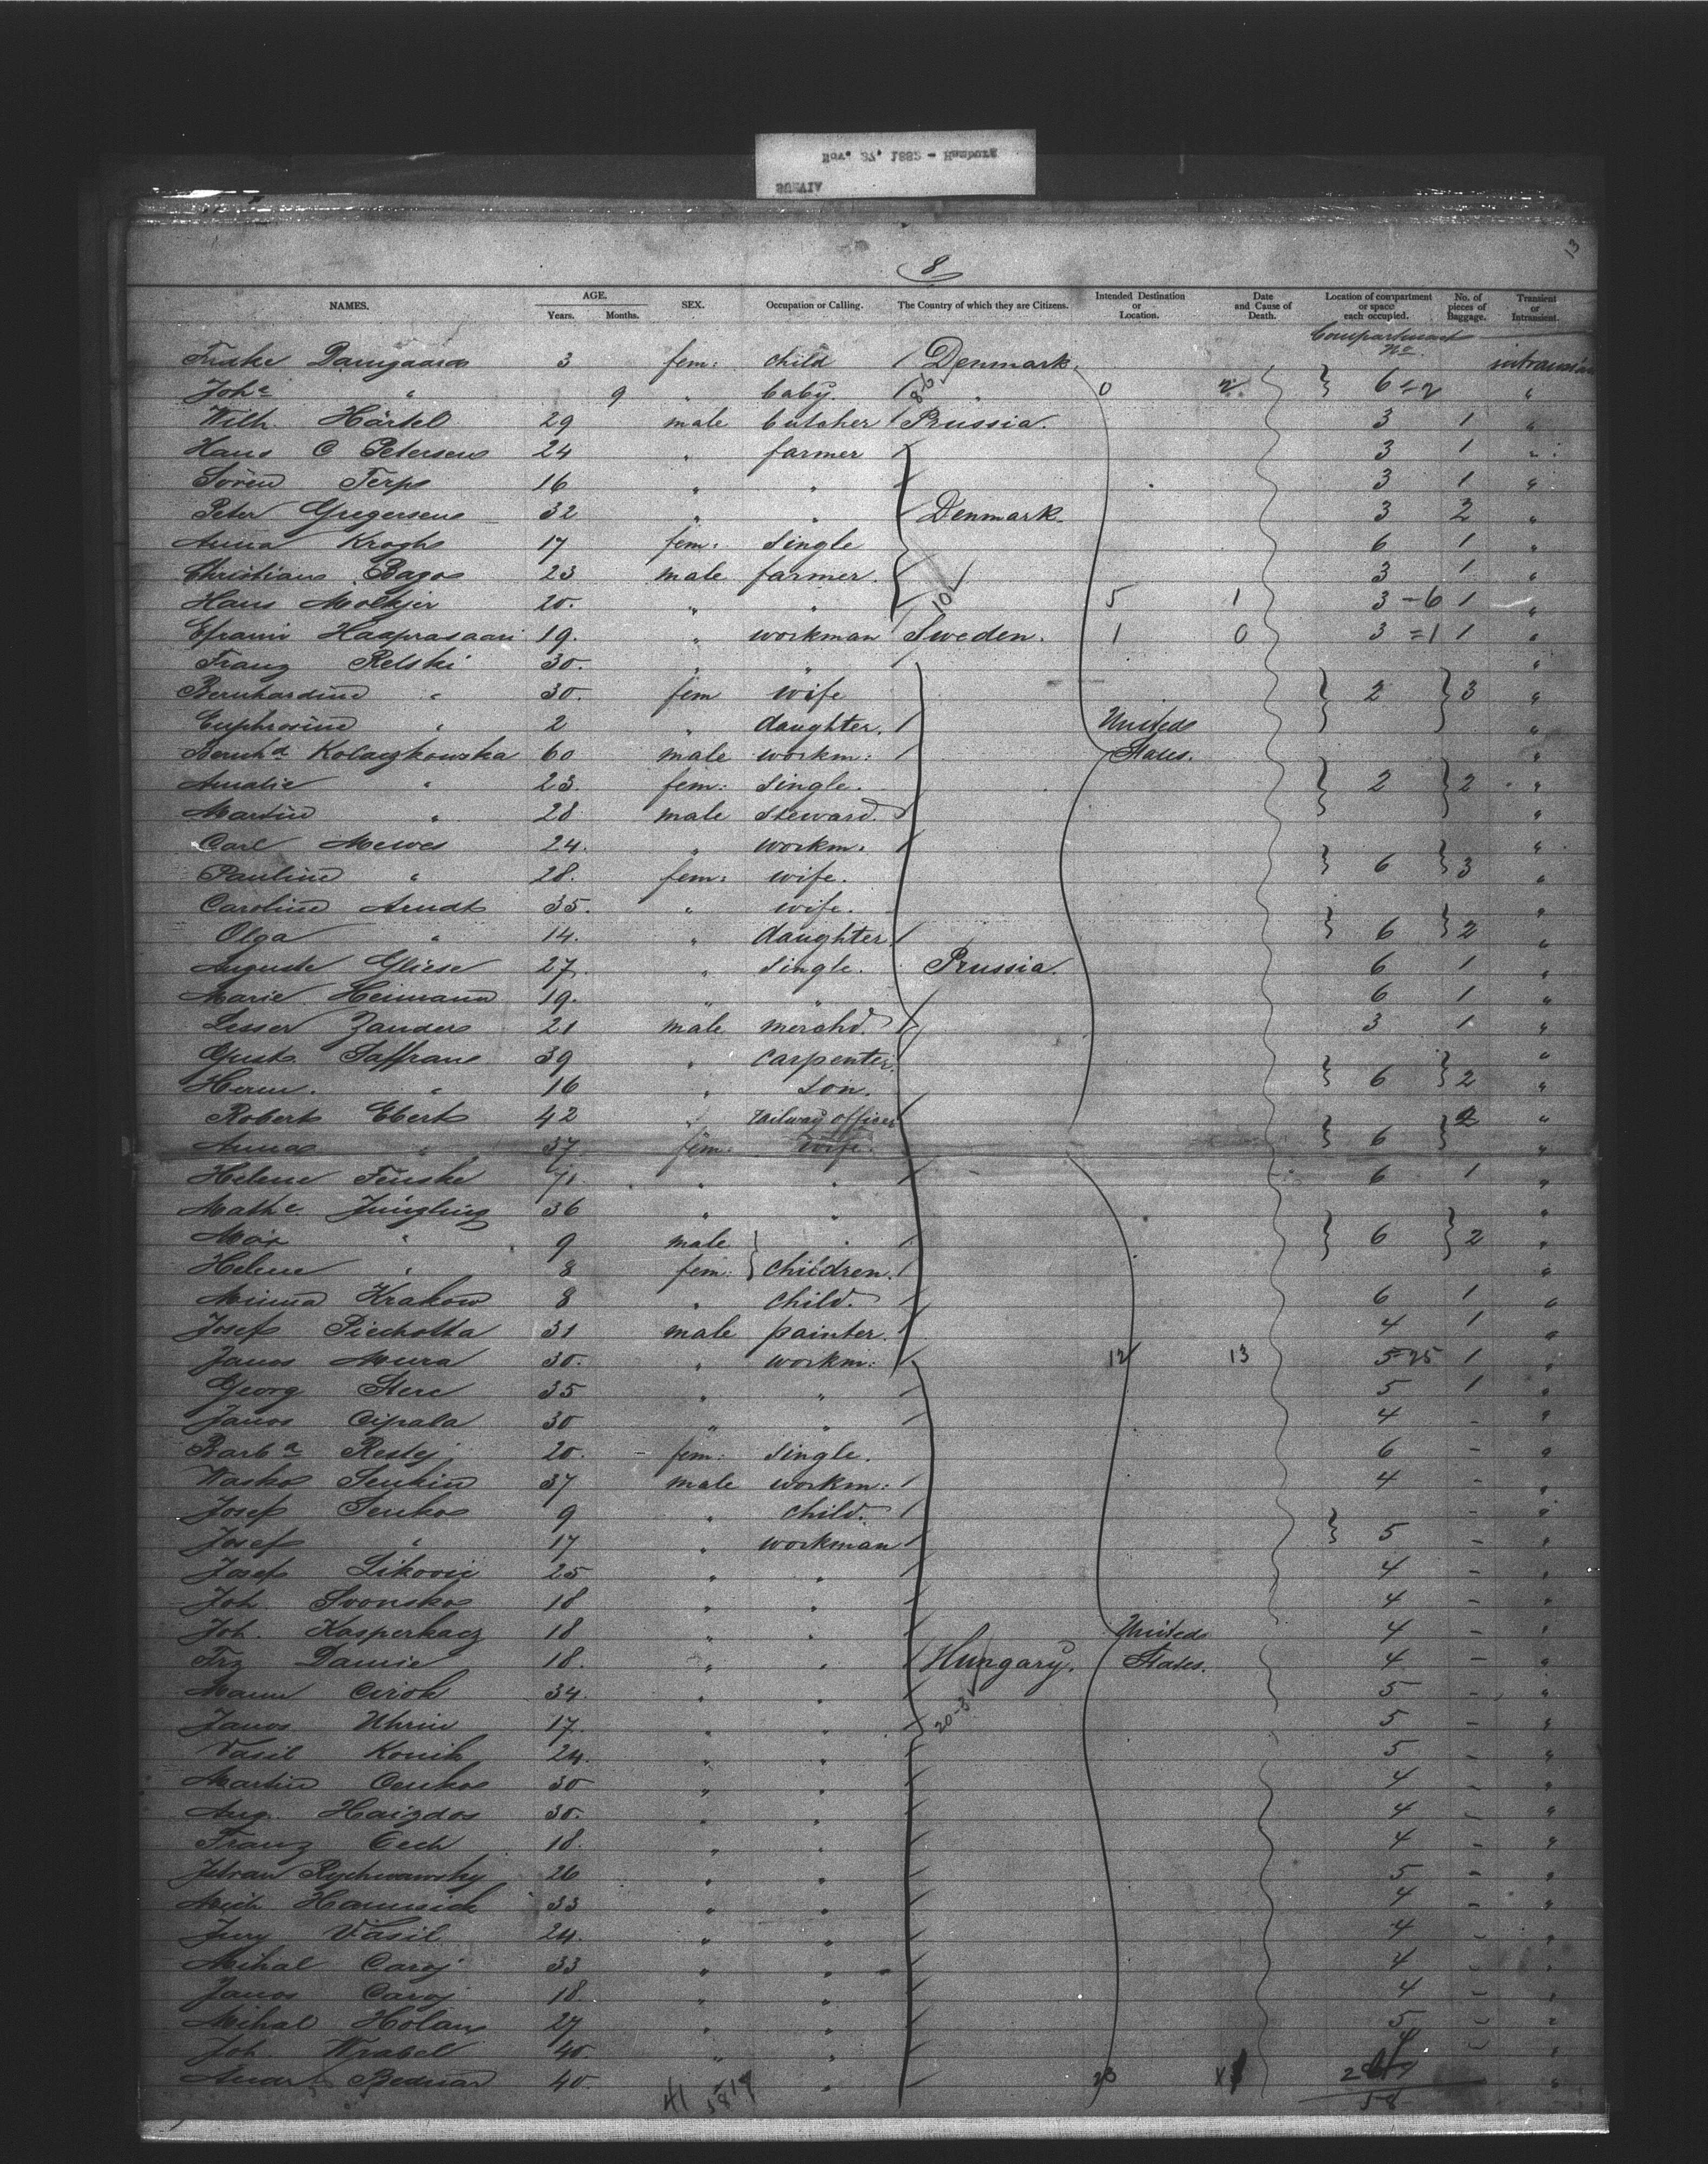 Nov. 27, 1882 - Hamburg
13
8
NAMES. AGE. Years. Months. SEX. Occupation or Calling. The Country of which they are Citizens. Intended Destination or Location. Date and Cause of Death. Location of compartment or space each occupied. No. of pieces of Baggage. Transient or Intransient.
Compartment No.
3 fem: child Denmark
Joh " 9 " baby. " 0 2 6=2 "
Wilh. Härtel 29 male butcher Prussia. 3 1 "
Hans C Petersen 24 " farmer 3 1 "
Sören Terp 16 " " 3 1 "
Peter Gregersen 32 " " Denmark. 3 2 "
Anna Krogh 17 fem: single 6 1 "
Christian Bagos 23 male farmer. 3 1 "
Hans 20. " " 5 1 3-6 1 "
Haaprasaari 19. " workman Sweden. 1 0 3=1 1 "
Franz Relski 30. " " "
Bernhardine " 30. fem wife 2 3 "
Euphrosine " 2 " daughter. United "
Bernhd Kolaczkowska 60 male workm: States. "
Amalie " 23. fem: single. 2 2 "
Martin " 28 male steward. "
Carl Mewes 24. " workm. "
Pauline " 28. fem: wife. 6 3 "
Caroline Arndt 35. " wife. "
Olga " 14. " daughter 6 2 "
Auguste Gliese 27. " single. Prussia. 6 1 "
Marie Heimann 19. " " 6 1 "
Lesser Zander 21 male merchd. 3 1 "
Gust. Saffran 39 " carpenter. "
Herm. " 16 " son. 6 2 "
Robert Ebert 42 " railway officer "
Anna " 37 fem: wife. 6 2 "
Helene Fenske 71. " " 6 1 "
Math. Jüngling 36 " " "
Max " 9 male " 6 2 "
Helene " 8 fem: children. "
Minna Krakow 8 " child. 6 1 "
Josef Piechotta 31 male painter. 4 1 "
Janos Mura 30. " workm: 12 13 5=25 1 "
Georg Stere 35 " " 5 1 "
Janos Cipala 30 " " 4 - "
Barba Restej 20. fem: single. 6 - "
Wasko Senkin 37 male workm: 4 - "
Josef Senko 9 " child. - "
Josef " 17 " workman 5 - "
Josef Likovic 25 " " 4 - "
Joh. Svonsko 18 " " 4 - "
Joh. Kasperkacz 18 " " United 4 - "
Frz Damie 18. " " Hungary. States. 4 - "
34. " " 5 - "
Janos Uhrin 17. " " 20-3 5 - "
Vasil Konik 24. " " 5 - "
Martin Cenko 30 " " 4 - "
Aug. Haizdos 30. " " 4 - "
Franz Cech 18. " " 4 - "
26 " " 5 - "
33 " " 4 - "
Jury Vasil 24. " " 4 - "
Mihal Caroj 33 " " 4 - "
Janos Caroj 18 " " 4 - "
Mihal Holan 27 " " 5 - "
Joh. Wrabel 40. " " 4 - "
Bednar 40. " "
41 58 17 58